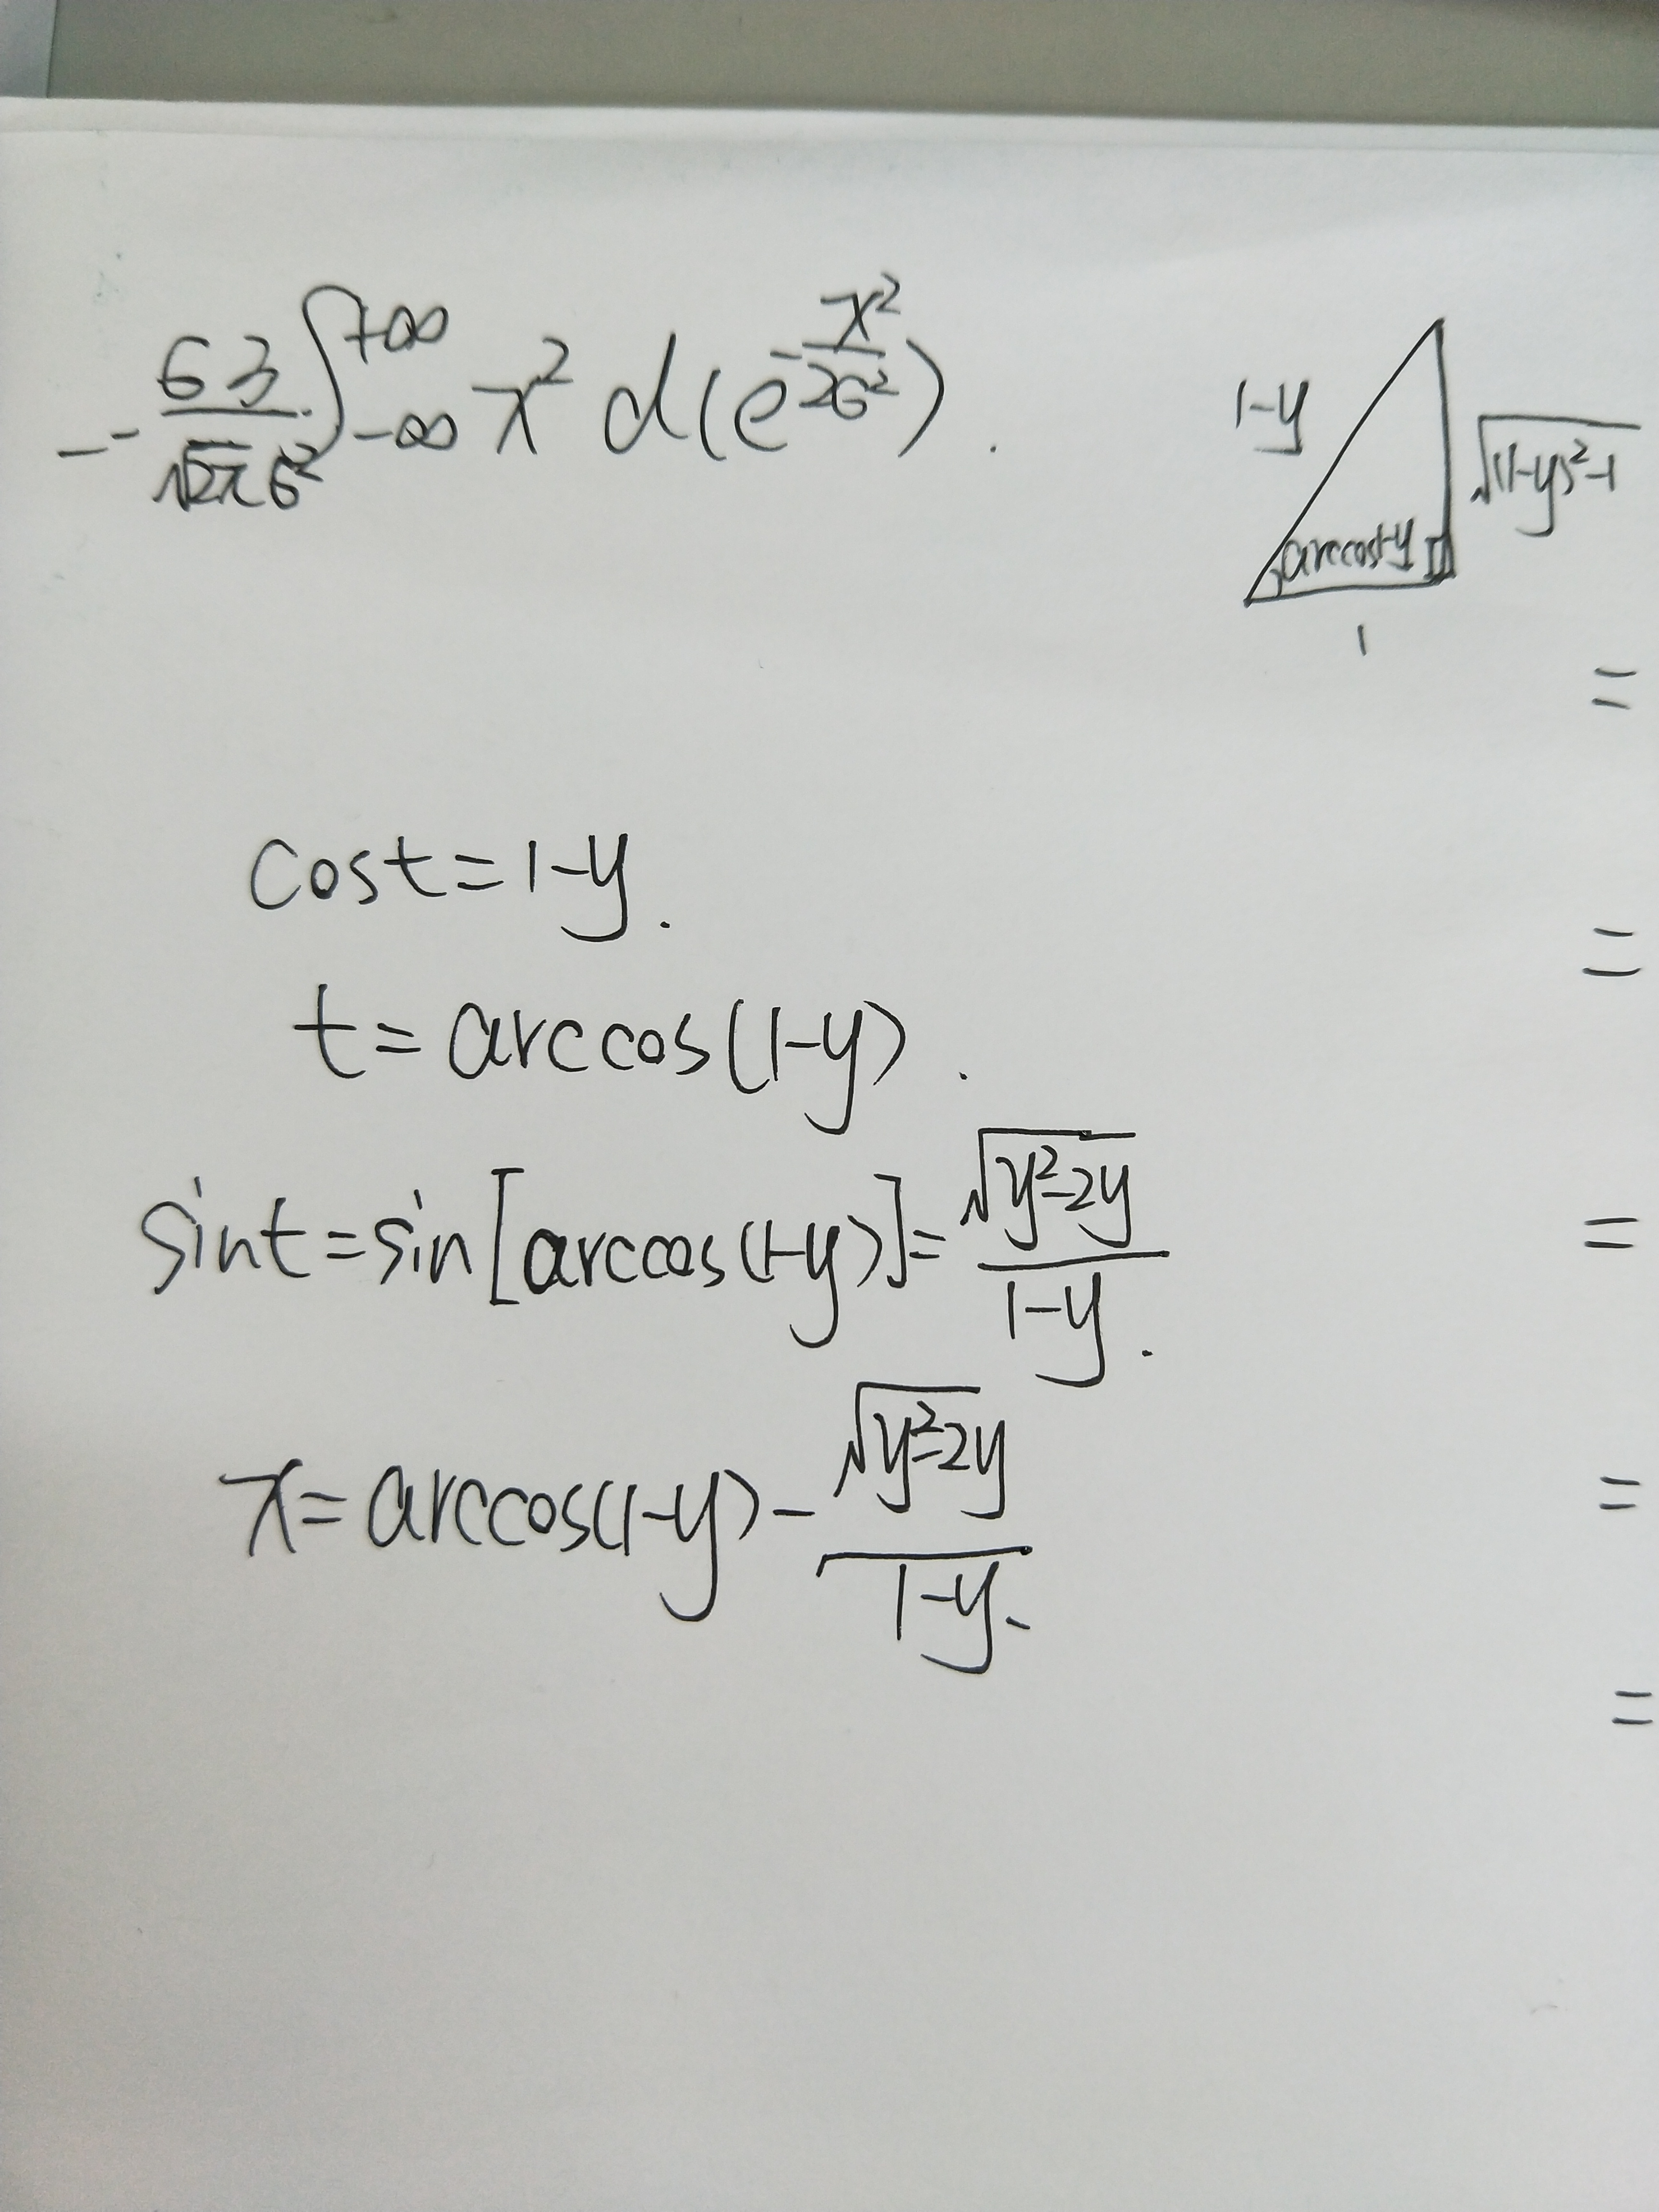 = -\frac{63}{\sqrt{2\pi}6^2}\int_{-\infty}^{+\infty} x^2 d(e^{-\frac{x^2}{26^2}}).
1-y
\sqrt{(1-y)^2-1}
arccos1-y
1
=
cost=1-y.
=
t=arccos(1-y).
sint=sin[arccos(1-y)]=\frac{\sqrt{y^2-2y}}{1-y}.
=
x=arccos(1-y)-\frac{\sqrt{y^2-2y}}{1-y}.
=
=